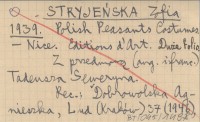 STRYJEŃSKA Zofia
1939. Polish Peasants Costumes
– Nice. Editions d'Art. Duże Folio
Z przedmową (ang. i franc.)
Tadeusza Seweryna.
Rec.: Dobrowolska Ag-
nieszka, Lud (Kraków) 37 (1947)